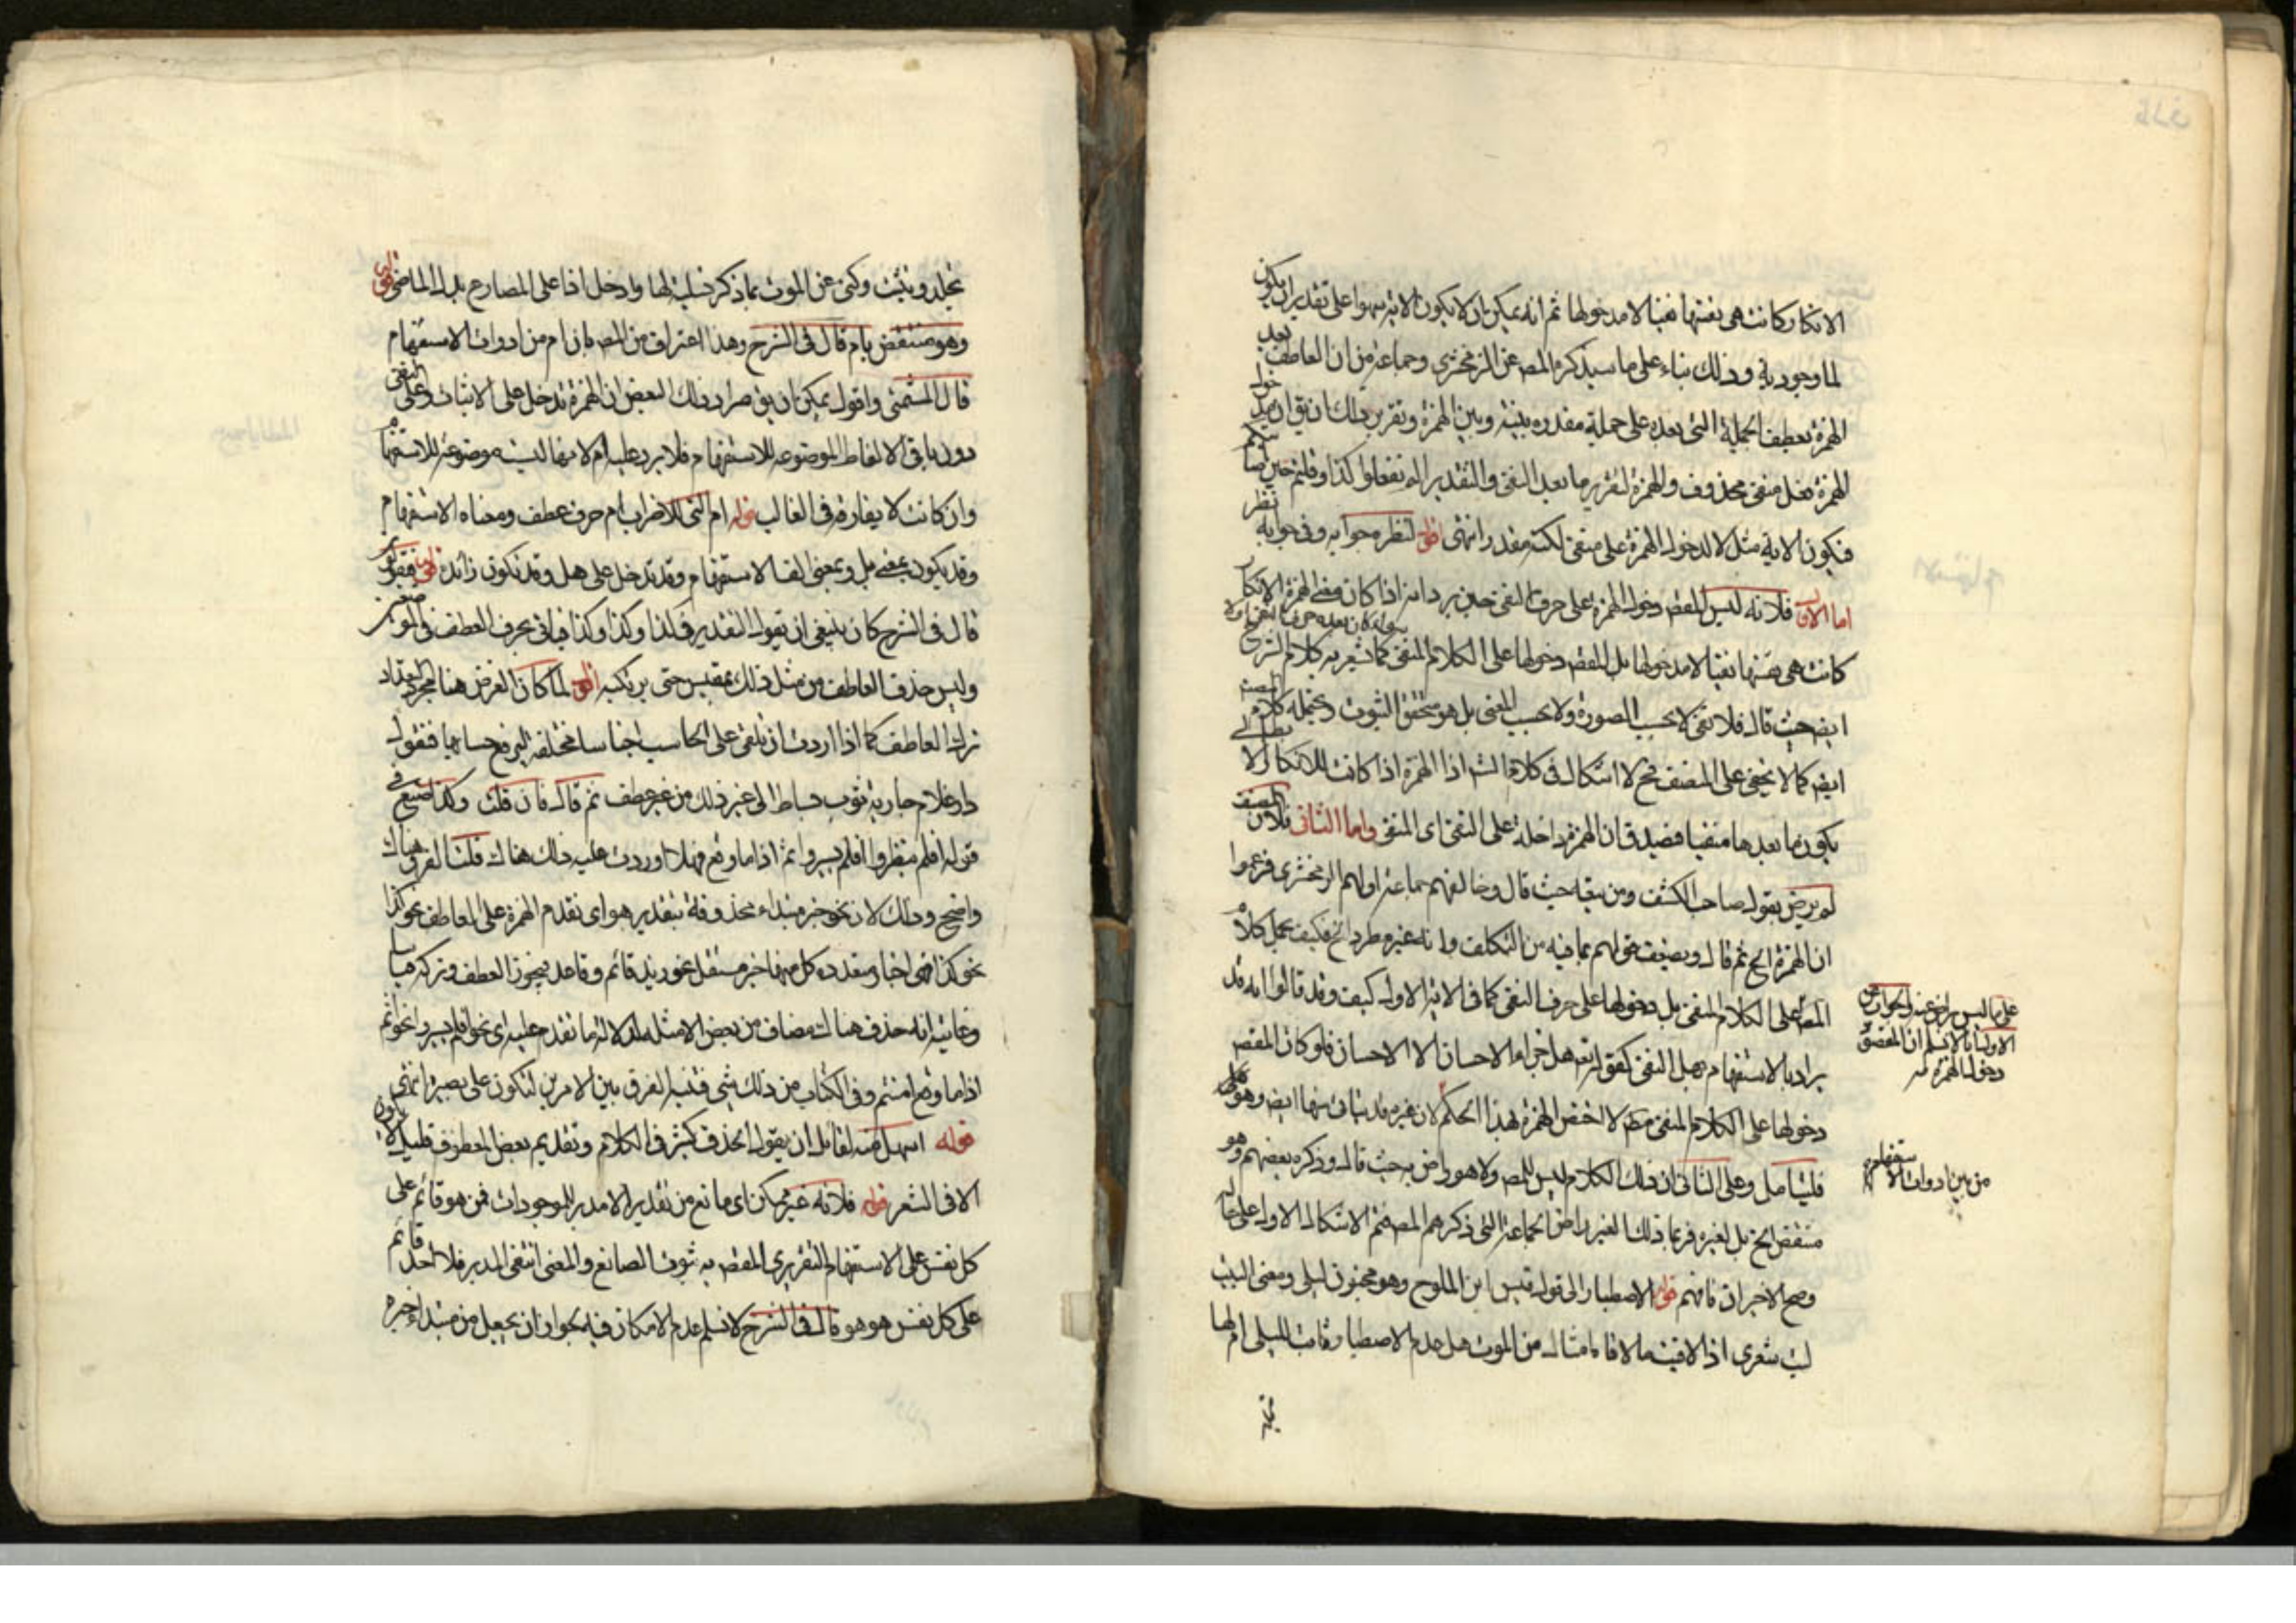 الانكار كانت هي نفسها نفيا لا مدخولها ثم انه يمكن ان لا يكون الاية سهوا على تقدير ان يكون
لما وجود به وذلك بناء على ما سيذكره المص عن الزمخشري وجماعة من ان العاطف بعد
الهمزة يعطف الجملة التى بعده على جملة مقدره بينه وبين الهمزة وتقرير ذلك ان يق ان مدخول
الهمزة فعل منفى محذوف والهمزة لتقرير ما بعد النفى والتقدير الم تفعلوا كذا وقلتم حين
فيكون الاية مثل لا لدخول الهمزة على منفى لكنه مقدر انتهى اقول لنظر جوابه وفى جوابه نظر
اما الاول فلانه ليس المقص دخول الهمزة على حرف النفى حين يرد انه اذا كان معنى الهمزة الانكار
كانت هى نفسها نفيا لا مدخولها بل المقص دخولها على الكلام المنفى كما يشعر به كلام الشرح
ايض حيث قال فلا نفى لا بحسب الصورة ولا بحسب المعنى بل هو محقق الثبوت كلام المصنف
ايض كما لا يخفى على المصنف فح لا اشكال فى كلام الش اذا الهمزة اذا كانت للانكار لا
يكون ما بعدها منفيا فيصدق ان الهمزة داخلة على النفى اى المنفى واما الثانى فلان المصنف
لم يرض بقول صاحب الكشف ومن تبعه حيث قال وخالفهم جماعة اولهم الزمخشرى فزعموا
ان الهمزة الخ ثم قال ويضعف قولهم بما فيه من التكلف وانه غير مطرد الخ فكيف يحمل كلام
المص على الكلام المنفى بل دخولها على حرف النفى كما فى الاية الاولى كيف وقد قالوا انه قد
يراد بالاستفهام بهل النفى كقوله تع هل جزاء الاحسان الا الاحسان فلو كان المقص
دخولها على الكلام المنفى مط لا اختص الهمزة بهذا الحكم لان غيره قد يشاركها ايض وهو هل
فليتامل وعلى الثانى ان ذلك الكلام ليس للمص ولا هو راض به حيث قال وذكره بعضهم وهو
منتقض الخ بل لغيره فربما ذلك الغير راض الجماعة التى ذكرهم المص فتم الاشكال الاول على حاله
وصح الاخيران فافهم قوله الاصطبار الى قوله قيس ابن الملوح وهو مجنون ليلى ومعنى البيت
ليت شعرى اذا لاقيت ما لاقاه امثالى من الموت هل عدم الاصطبار ثابت لليلى ام لها
على ما ليس براض عنه والجواب عن
الاول انا لا نسلم ان المقص
دخول الهمزة
من بين ادوات الاستفهام
تجلد وتثبت وكنى عن الموت بما ذكر تسلية لها وادخل اذا على المضارع بدل الماضى قوله
وهو منتقض بام قال فى الشرح وهذا اعتراف من المص بان ام من ادوات الاستفهام
قال الشمنى واقول يمكن ان يق مراد ذلك البعض ان الهمزة تدخل على الاثبات وعلى النفى
دون باقى الالفاظ الموضوعه للاستفهام فلا يرد عليه ام لانها ليست موضوعة للاستفهام
وان كانت لا يفارقه فى الغالب قوله ام التى للاضراب ام حرف عطف ومعناه الاستفهام
وقد يكون بمعنى بل وبمعنى الف الاستفهام وقد تدخل على هل وقد تكون زائدة قوله
قال فى الشرح كان ينبغى ان يقول التقدير فكذا وكذا وكذا فياتى بحرف العطف فى الموضعين
وليس حذف العاطف من مثل ذلك بمقيس حتى يرتكبه اقول لما كان الغرض هنا مجرد التعداد
ترك العاطف كما اذا اردت ان تلقى على الحاسب اجناسا مختلفه ليرفع حسابها فتقول
دار غلام جارية ثوب بساط الى غير ذلك من غير عطف ثم قال فان قلت وكذا صنع فى
قوله افلم ينظروا افلم يسيروا اثم اذا ما وقع فهلا اوردت عليه ذلك هناك قلت الفرق هناك
واضح وذلك لان نحو خبر مبتداء محذوفة بتقدير هو اى تقدم الهمزة على العاطف نحو كذا
نحو كذا فهى اخبار متعدده كل منها خبر مستقل نحو زيد قائم وقاعد يجوز العطف وتركه
وغايته انه حذف هناك مضاف من بعض الامثله لدلالة ما تقدم عليه اى نحو افلم يسيروا نحو اثم
اذا ما وقع امنتم وفى الكتاب من ذلك شئ فتنبه للفرق بين الامرين لتكون على بصيرة انتهى
قوله اسهل منه لقائل ان يقول الحذف كثير فى الكلام وتقديم بعض المعطوف قليل
الا فى الشعر قوله فلانه غير ممكن اى مانع من تقدير الا مدبر للموجودات فمن هو قائم على
كل نفس على الاستفهام التقريرى المقص به ثبوت الصانع والمعنى انتفى المدبر فلا احد قائم
على كل نفس هو هو قال فى الشرح لا نسلم عدم الامكان فيه بجواز ان يجعل من مبتداء خبره